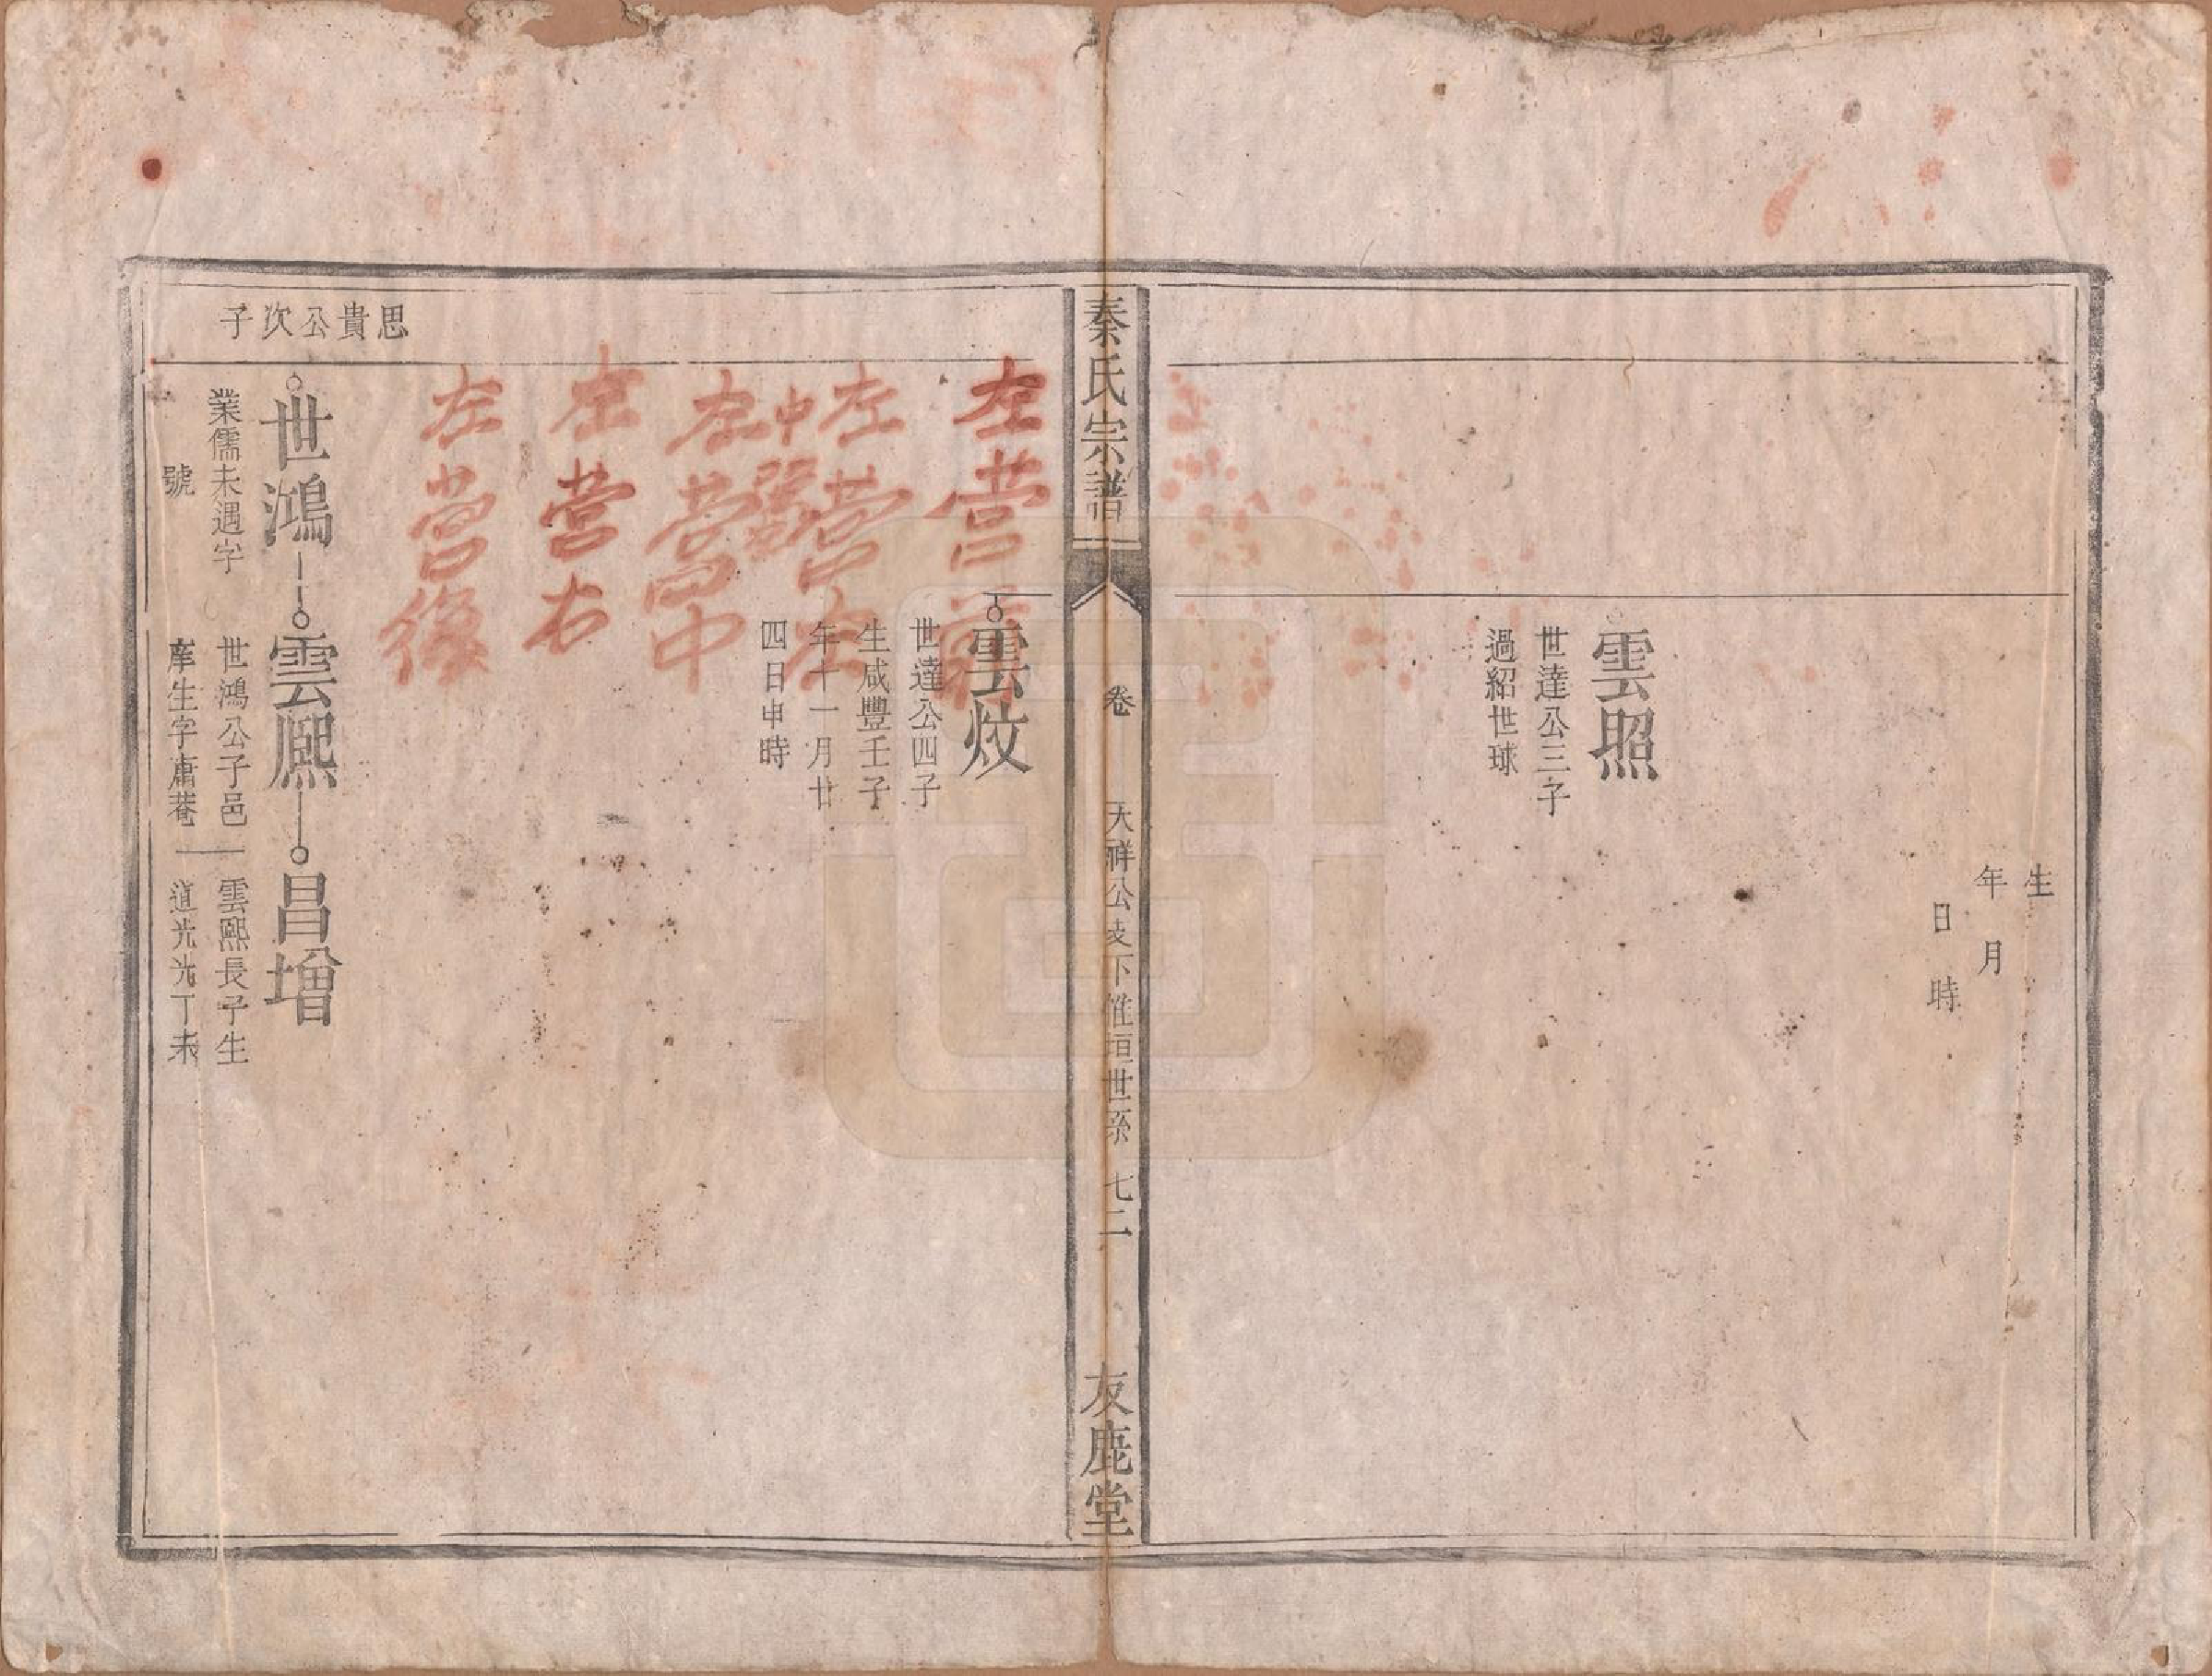 生
年　月
日　時
雲照
世達公三子
過紹世球
秦氏宗譜
卷
天祥公支下惟垣世系
七二
友鹿堂
雲炆
世達公四子
生咸豐壬子
年十一月廿
四日申時
左营前
左营左
中
左营中
左营右
左营後
思貴公次子
世鴻
業儒未遇字
號
雲熈
世鴻公子邑
庠生字肅菴
昌增
雲熈長子生
道光光丁未